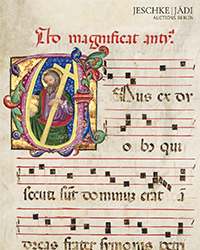 JESCHKE | JÁDI
AUCTIONS BERLIN
Ad magnificat
Unus ex du
o bꝰ qui
secuti sūt dominum erat ā
dreas frater symonis petri